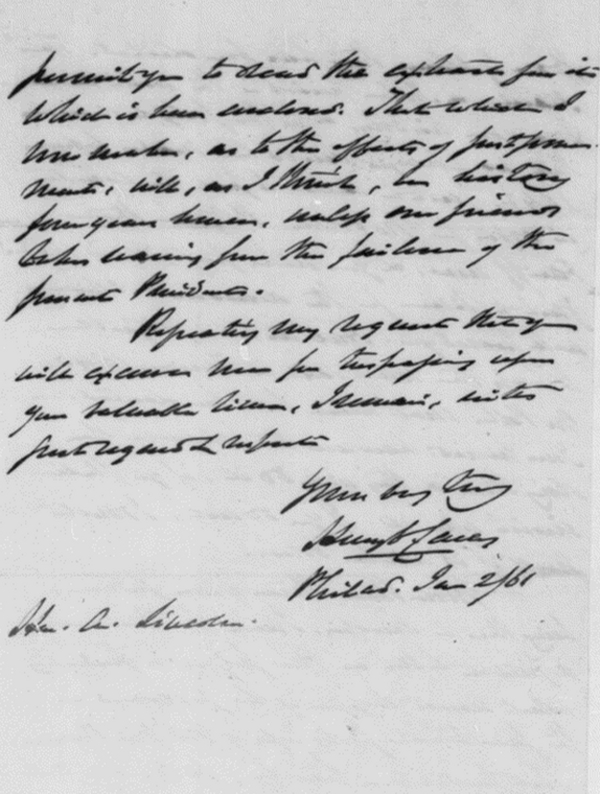 permit you to read the extracts from it
which is here enclosed. That which I
now make, as to the effects of postpone-
ment, will, as I think, be history
four years hence, unless our friends
take warning from the failure of the
present President.
Repeating my request that you
will excuse me for trespassing upon
your valuable time, I remain, with
great regard & respect
Yours very truly
Henry C Carey
Philad. Jan 2/61
Hon. A. Lincoln.